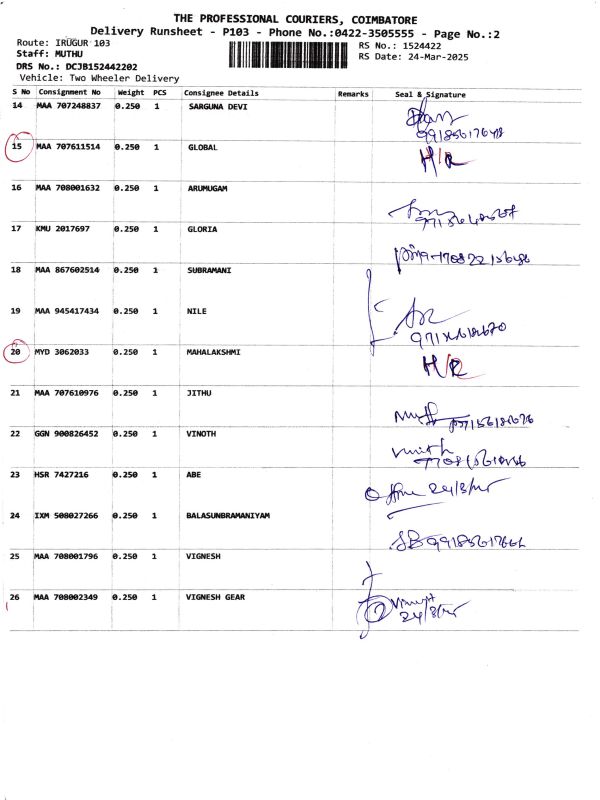 THE PROFESSIONAL COURIERS, COIMBATORE
Delivery Runsheet - P103 - Phone No.:0422-3505555 - Page No.:2
Route: IRUGUR 103
RS No.: 1524422
Staff: MUTHU
RS Date: 24-Mar-2025
DRS No.: DCJB152442202
Vehicle: Two Wheeler Delivery
S No Consignment No Weight PCS Consignee Details Remarks Seal & Signature
14 MAA 707248837 0.250 1 SARGUNA DEVI
15 MAA 707611514 0.250 1 GLOBAL H/R
16 MAA 708001632 0.250 1 ARUMUGAM
17 KMU 2017697 0.250 1 GLORIA
18 MAA 867602514 0.250 1 SUBRAMANI
19 MAA 945417434 0.250 1 NILE
20 MYD 3062033 0.250 1 MAHALAKSHMI H/R
21 MAA 707610976 0.250 1 JITHU
22 GGN 900826452 0.250 1 VINOTH
23 HSR 7427216 0.250 1 ABE 24/3/
24 IXM 508027266 0.250 1 BALASUNBRAMANIYAM
25 MAA 708001796 0.250 1 VIGNESH
26 MAA 708002349 0.250 1 VIGNESH GEAR 24/3/